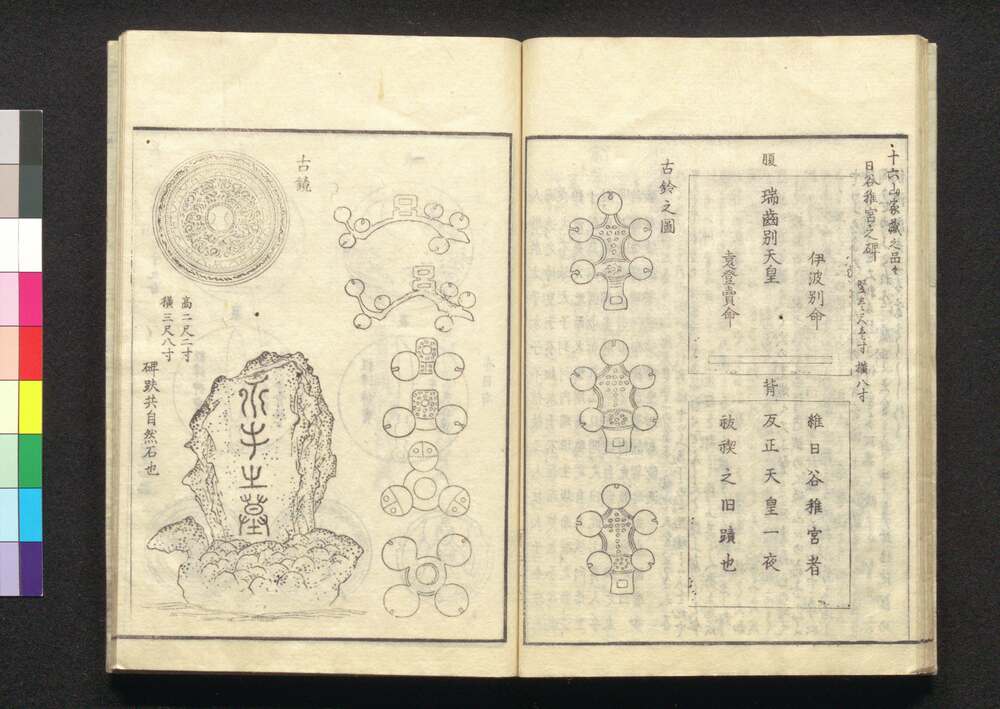 十六山家蔵之品々
日谷稚宮之碑
竪三尺五寸 横八寸
腹
伊波別命
瑞齒別天皇
袁登賣命
背
維日谷稚宮者
反正天皇一夜
祓禊之旧蹟也
古鈴之圖
古鏡
高二尺二寸
横三尺八寸
碑趺共自然石也